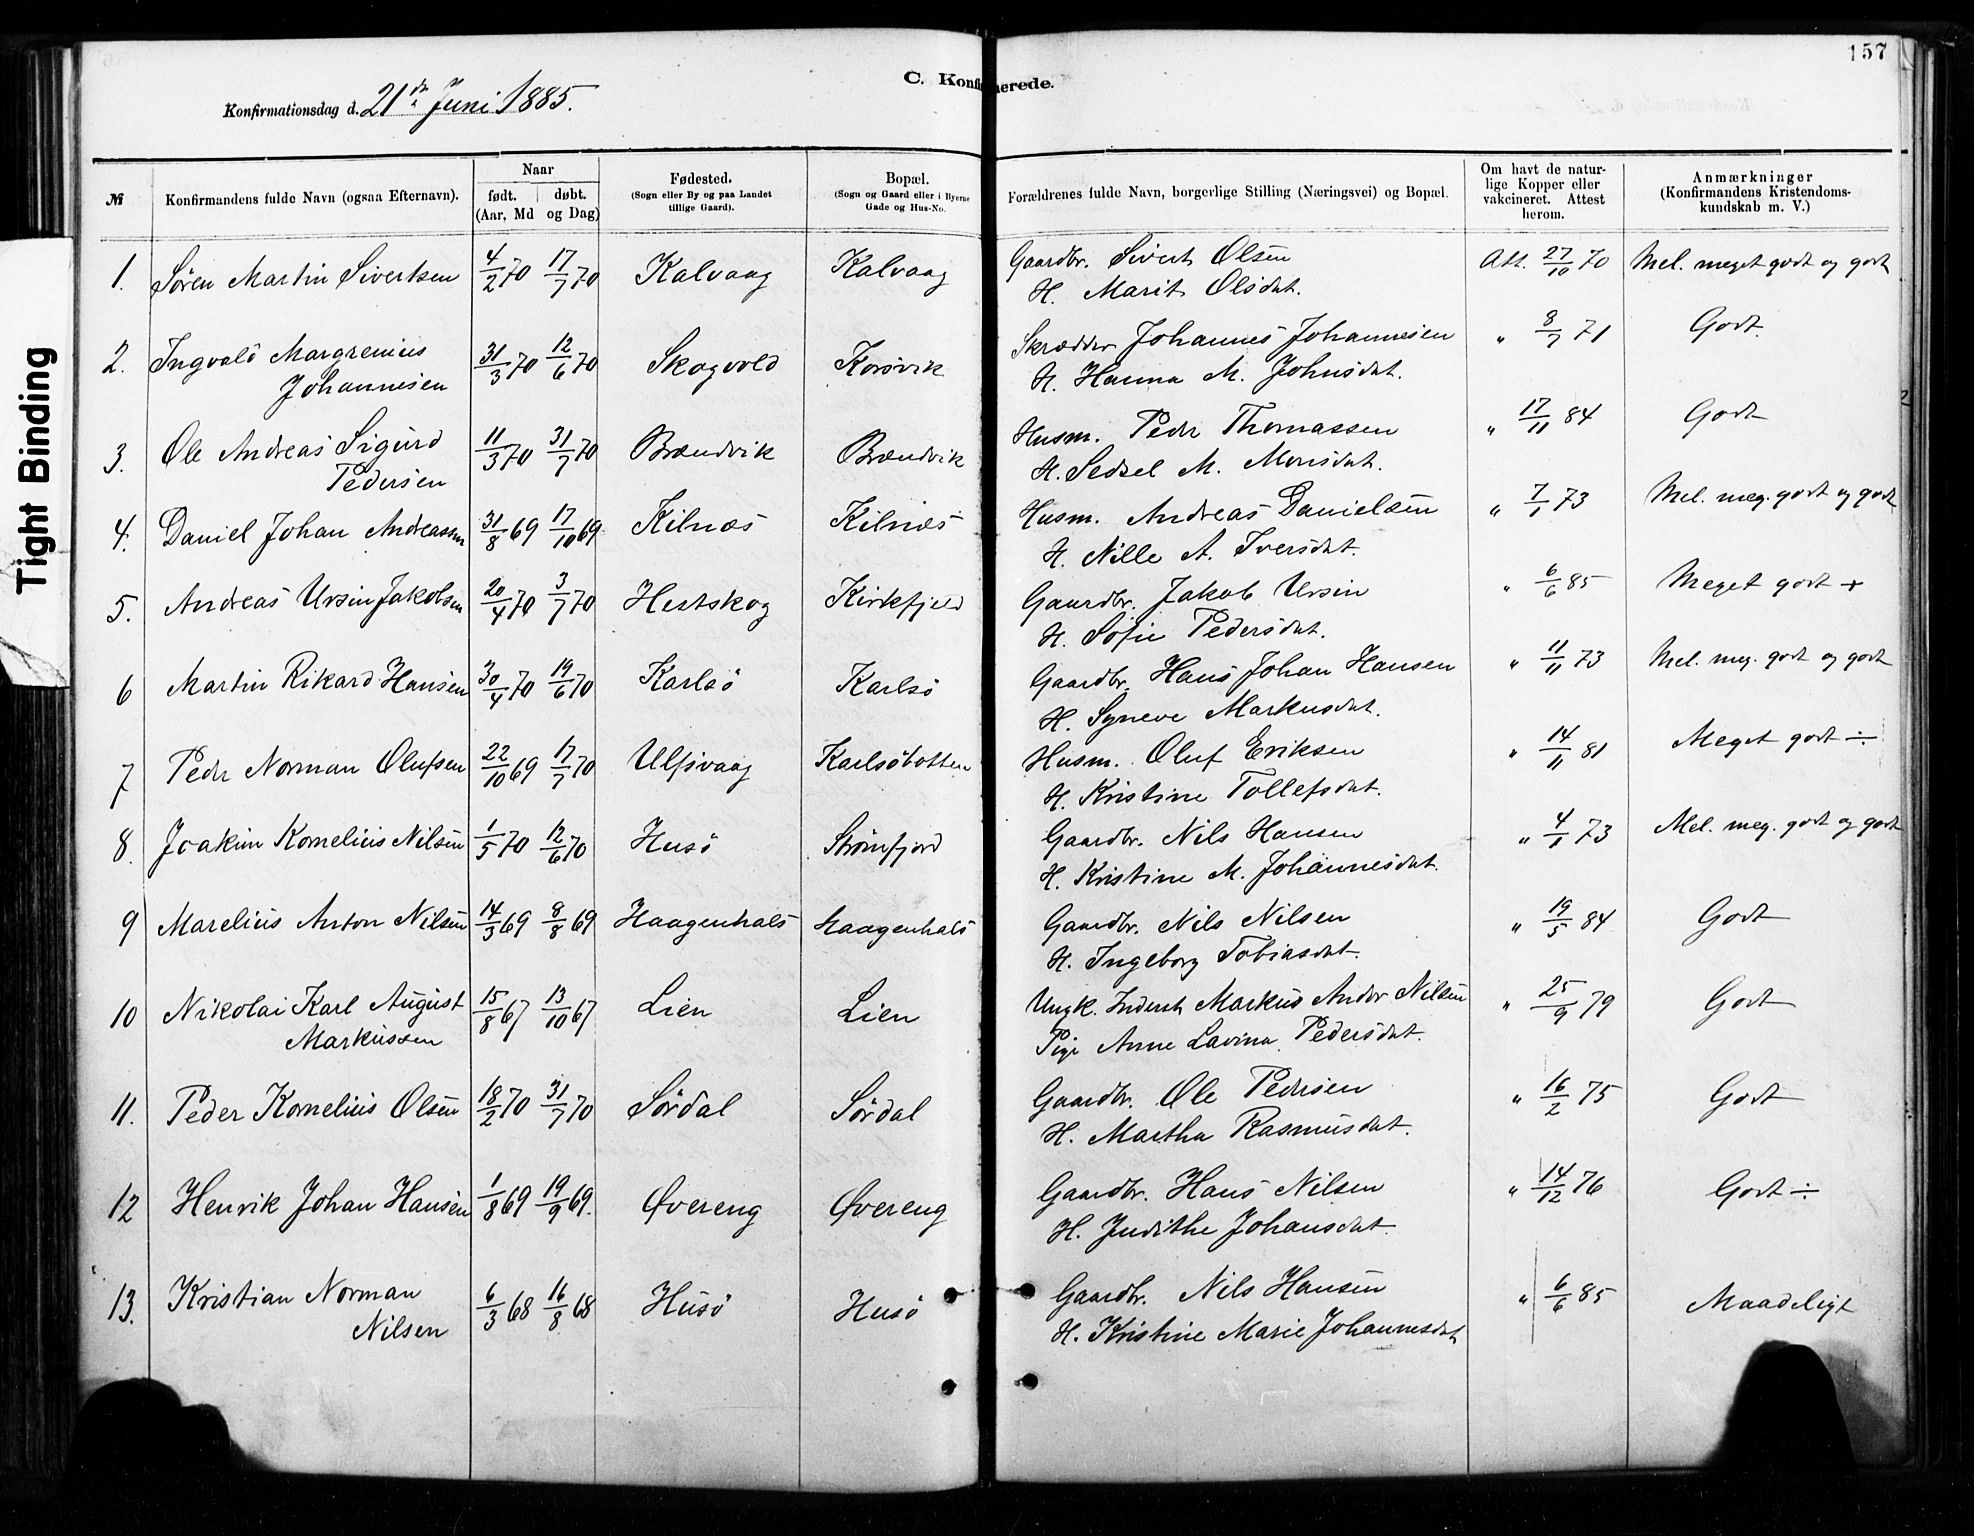 157
C. Konfirmerede.
Konfirmationsdag d. 21de Juni 1885.
Tight Binding
№
Konfirmandens fulde Navn (ogsaa Efternavn).
Naar
født. døbt.
(Aar, Md og Dag)
Fødested.
(Sogn eller By og paa Landet
tillige Gaard).
Bopæl.
(Sogn og Gaard eller i Byerne
Gade og Hus-No.
Forældrenes fulde Navn, borgerlige Stilling (Næringsvei) og Bopæl.
Om havt de natur-
lige Kopper eller
vakcineret. Attest
herom.
Anmærkninger
(Konfirmandens Kristendoms-
kundskab m. V.)
1. Søren Martin Sivertsen 4/2 70 17/7 70 Kalvaag Kalvaag Gaardbr. Sivert Olsen Att. 27/10 70 Mel. meget godt og godt
H. Marit Olsdat.
2. Ingvald Margrenius 31/3 70 12/6 70 Skogvold Korsvik Skrædder Johannes Johannesen " 8/7 71 Godt.
Johannesen H. Hanna M. Johnsdat.
3. Ole Andreas Sigurd 11/3 70 31/7 70 Brændvik Brændvik Husm. Peder Thomassen " 17/11 84 Godt
Pedersen H. Sedsel M. Monsdat.
4. Daniel Johan Andreassen 31/8 69 17/10 69 Kilnæs Kilnæs Husm. Andreas Danielsen " 7/1 73 Mel. meg. godt og godt
H. Nille A. Iversdat.
5. Andreas Ursin Jakobsen 20/4 70 3/7 70 Hestskog Kirkfjeld Gaardbr. Jakob Ursin " 6/6 85 Meget godt +
H. Sofie Pedersdat.
6 Martin Rikard Hansen 30/4 70 19/6 70 Karlsö Karlsö Gaardbr. Hans Johan Hansen " 11/11 73 Mel. meg. godt og godt
H. Syneve Markusdat.
7 Peder Norman Olufsen 22/10 69 17/7 70 Ulfsvaag Karlsöbotten Husm. Oluf Eriksen " 14/11 81 Meget godt ÷
H. Kristine Tollefsdat.
8. Joakim Kornelius Nilsen 1/5 70 12/6 70 Husö Strømfjord Gaardbr. Nils Hansen " 4/1 73 Mel. meg. godt og godt
H. Kristine M. Johannesdat.
9 Marelius Anton Nilsen 14/3 69 8/8 69 Haagenhals Haagenhals Gaardbr. Nils Nilsen " 19/5 84 Godt
H. Ingeborg Tobiasdat.
10 Nikolai Karl August 15/8 67 13/10 67 Lien Lien Ungk. Inderst Markus Ander Nilsen " 25/9 79 Godt
Markussen Pige Anne Lavina Pedersdat.
11. Peder Kornelius Olsen 18/2 70 31/7 70 Sördal Sördal Gaardbr. Ole Pedersen " 16/2 75 Godt
H. Martha Rasmusdat.
12 Henrik Johan Hansen 1/8 69 19/9 69. Øvereng Øvereng Gaardbr. Hans Nilsen " 14/12 76 Godt ÷
H. Judithe Johansdat.
13. Kristian Norman 6/3 68 16/8 68 Husö Husö Gaardbr. Nils Hansen " 6/6 85 Maadeligt
Nilsen H. Kristine Marie Johannesdat